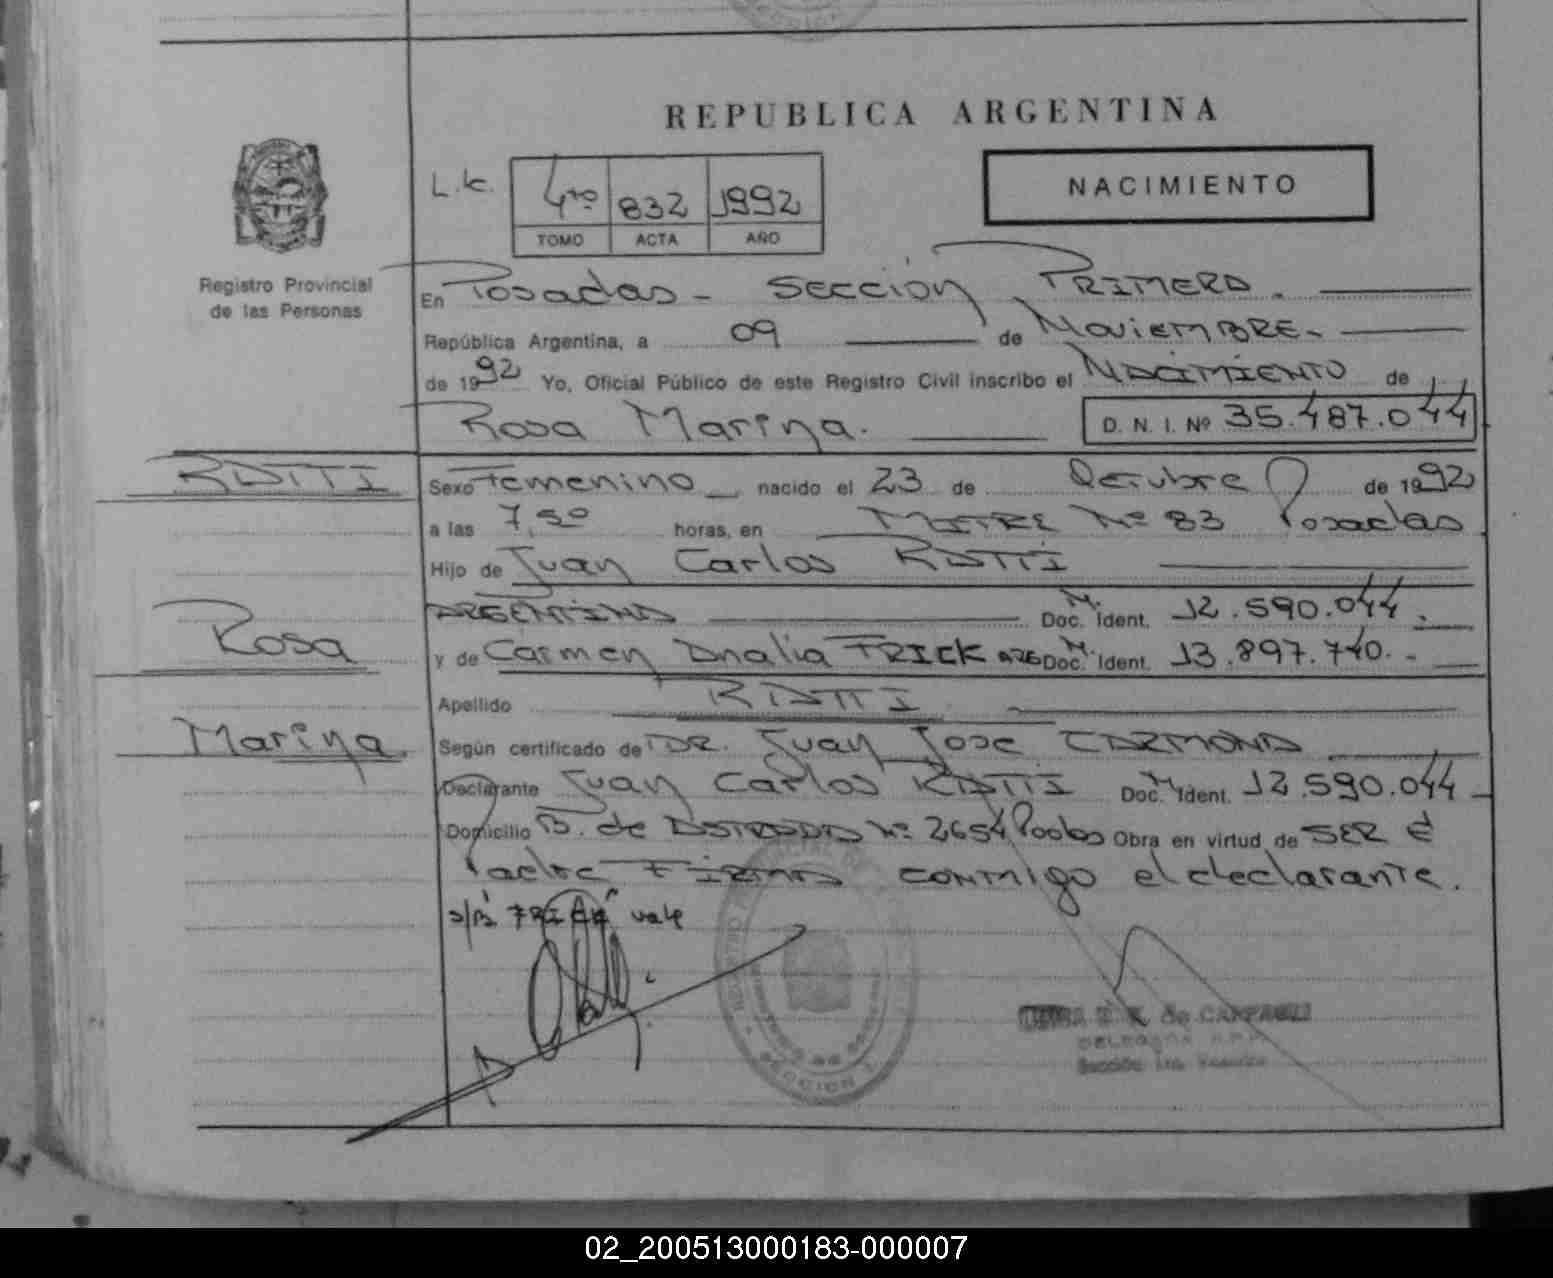 REPUBLICA ARGENTINA
NACIMIENTO
L.c. 4to 832 1992
TOMO ACTA AÑO
Registro Provincial
de las Personas
En Posadas - Sección Primera.
República Argentina, a 09 de Noviembre.
de 1992 Yo, Oficial Público de este Registro Civil inscribo el Nacimiento de
Rosa Marina. D. N. I. Nº 35.487.044
RATTI
Sexo Femenino nacido el 23 de Octubre de 1992
a las 7,50 horas, en Mitre Nº 83 Posadas
Hijo de Juan Carlos RATTI
ARGENTINA Doc. M. Ident. 12.590.044.
Rosa
y de Carmen Analia FRICK ARG Doc. M. Ident. 13.897.740.-
Apellido RATTI
Marina
Según certificado de DR. Juan Jose CARMONA
Declarante Juan Carlos RATTI Doc. M. Ident. 12.590.044
Domicilio B. de ASTRADA Nº 2654 Posdas Obra en virtud de SER el
Padre FIRMA conmigo el declarante.
S/B "FRICK" vale
SECCION 1
de CAMPAGLI
Sección 1ra. Posadas
02_200513000183-000007